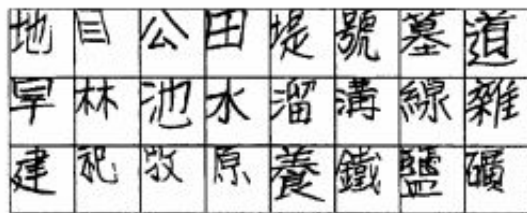 地目公田堤號墓道
旱林池水溜溝線雜
建祀牧原養鐵鹽礦